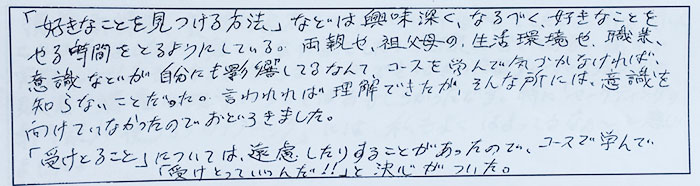 「好きなことを見つける方法」などは興味深く、なるべく、好きなことを
やる時間をとるようにしている。両親や、祖父母の、生活環境や、職業、
意識などが自分にも影響してるなんて、コースを学んで気づかなければ、
知らないことだった。言われれば理解できたが、そんな所には、意識を
向けていなかったのでおどろきました。
「受けとること」については、遠慮したりすることがあったので、コースで学んで
「受けとっていいんだ!!」と決心がついた。